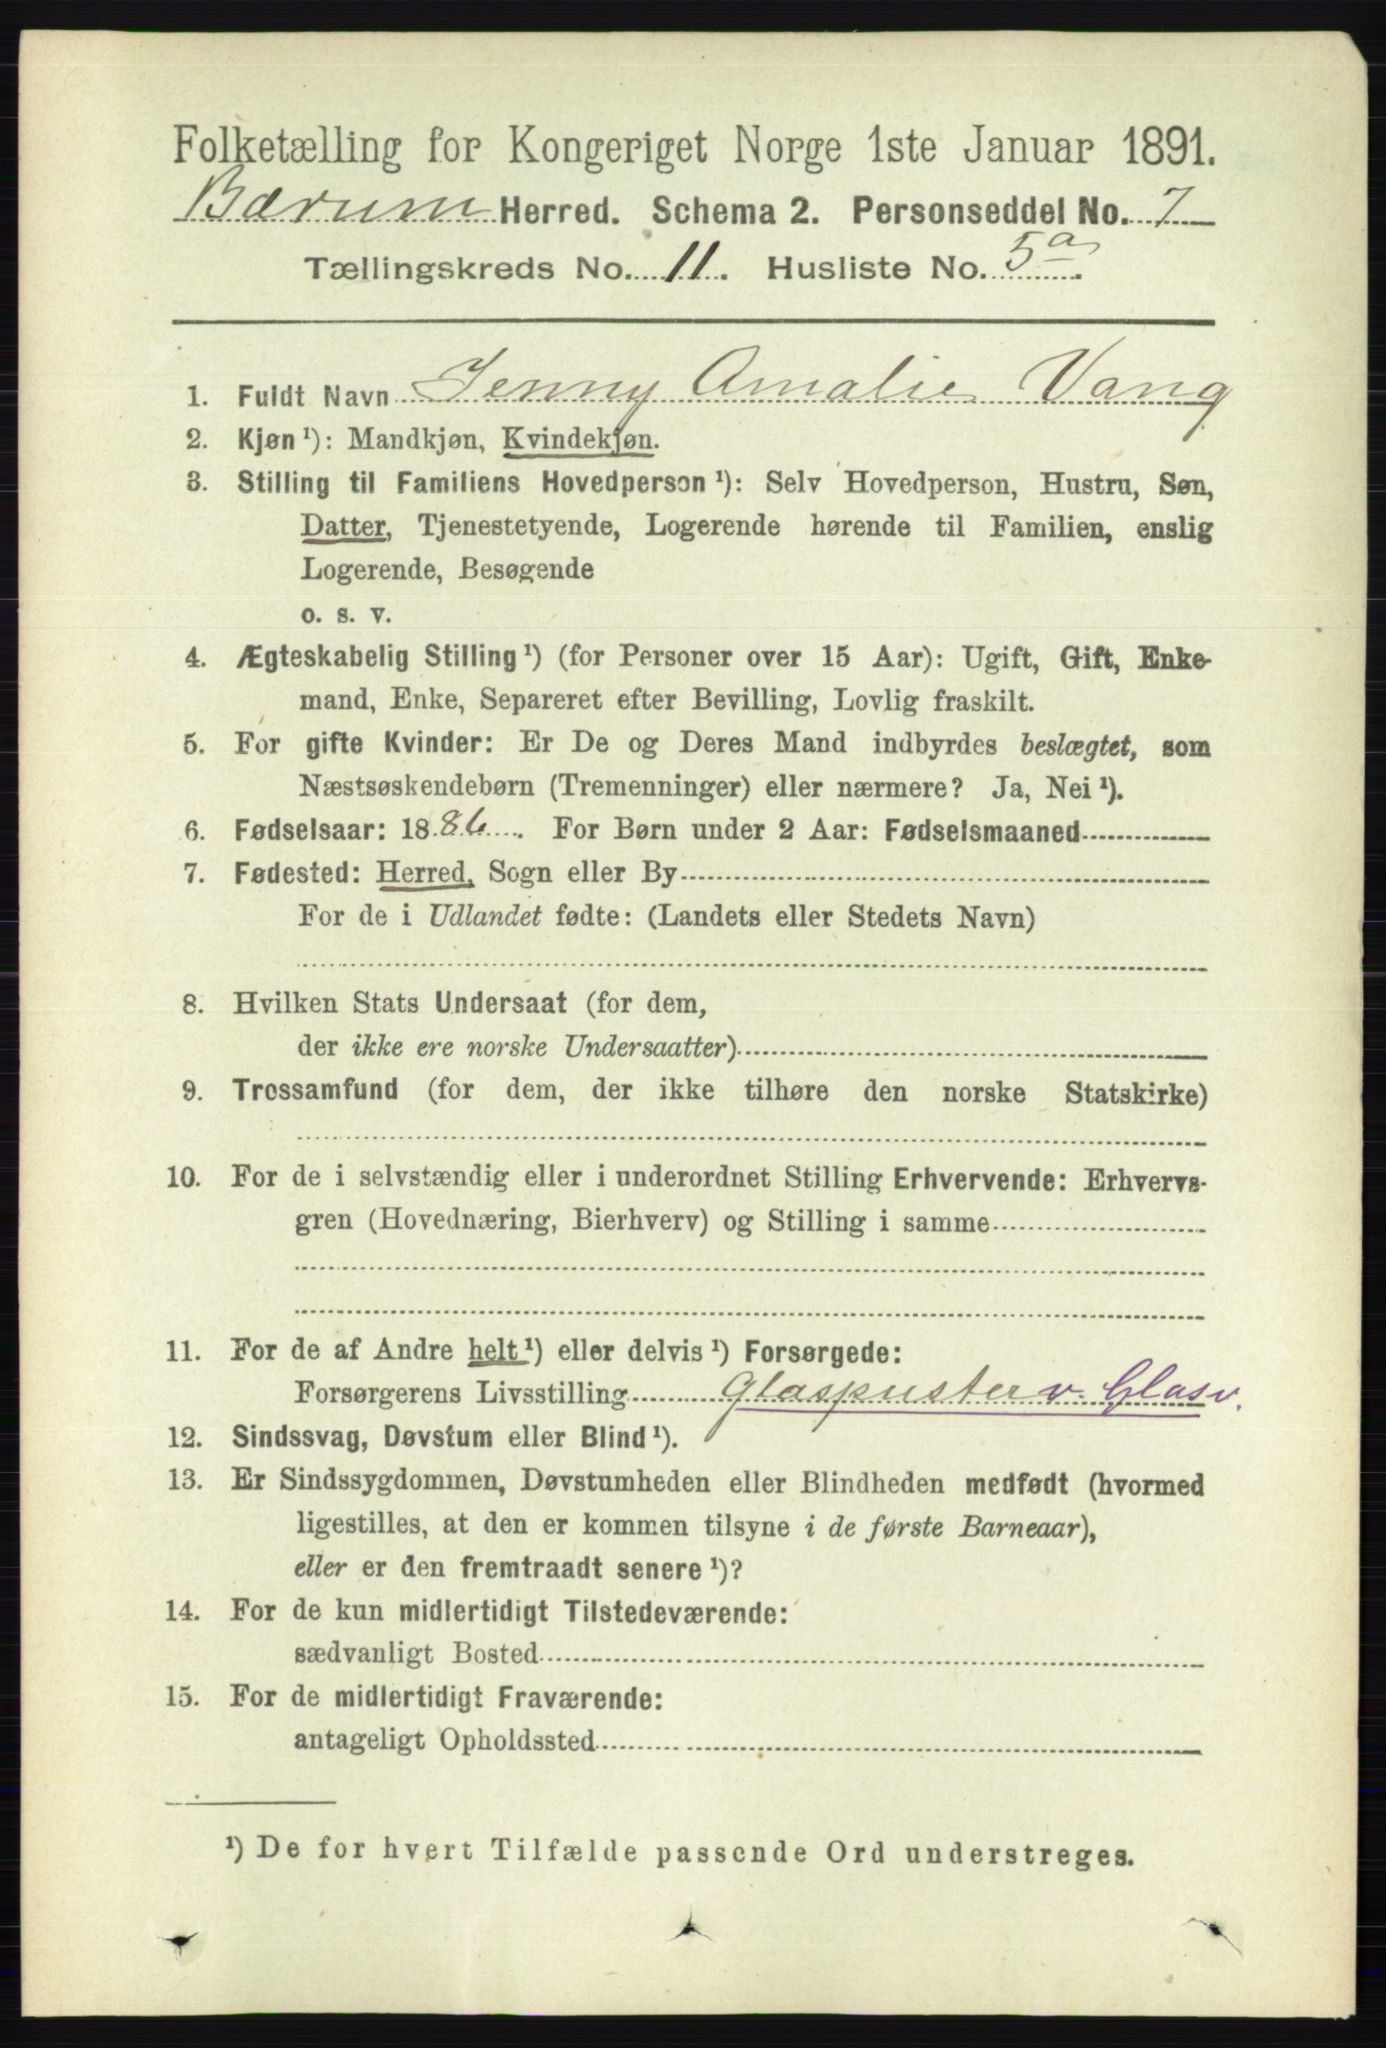 Folketælling for Kongeriget Norge 1ste Januar 1891.
Bærum Herred. Schema 2. Personseddel No. 7
Tællingskreds No. 11. Husliste No. 5a.
1. Fuldt Navn Jenny Amalie Vang
2. Kjøn ¹): Mandkjøn, Kvindekjøn.
3. Stilling til Familiens Hovedperson ¹): Selv Hovedperson, Hustru, Søn,
Datter, Tjenestetyende, Logerende hørende til Familien, enslig
Logerende, Besøgende
o. s. v.
4. Ægteskabelig Stilling ¹) (for Personer over 15 Aar): Ugift, Gift, Enke-
mand, Enke, Separeret efter Bevilling, Lovlig fraskilt.
5. For gifte Kvinder: Er De og Deres Mand indbyrdes beslægtet, som
Næstsøskendebørn (Tremenninger) eller nærmere? Ja, Nei ¹).
6. Fødselsaar: 1886. For Børn under 2 Aar: Fødselsmaaned
7. Fødested: Herred, Sogn eller By
For de i Udlandet fødte: (Landets eller Stedets Navn)
8. Hvilken Stats Undersaat (for dem,
der ikke ere norske Undersaatter)
9. Trossamfund (for dem, der ikke tilhøre den norske Statskirke)
10. For de i selvstændig eller i underordnet Stilling Erhvervende: Erhvervs-
gren (Hovednæring, Bierhverv) og Stilling i samme
11. For de af Andre helt ¹) eller delvis ¹) Forsørgede:
Forsørgerens Livsstilling Glaspuster v. Glasv.
12. Sindssvag, Døvstum eller Blind ¹).
13. Er Sindssygdommen, Døvstumheden eller Blindheden medfødt (hvormed
ligestilles, at den er kommen tilsyne i de første Barneaar),
eller er den fremtraadt senere ¹)?
14. For de kun midlertidigt Tilstedeværende:
sædvanligt Bosted
15. For de midlertidigt Fraværende:
antageligt Opholdssted
¹) De for hvert Tilfælde passende Ord understreges.